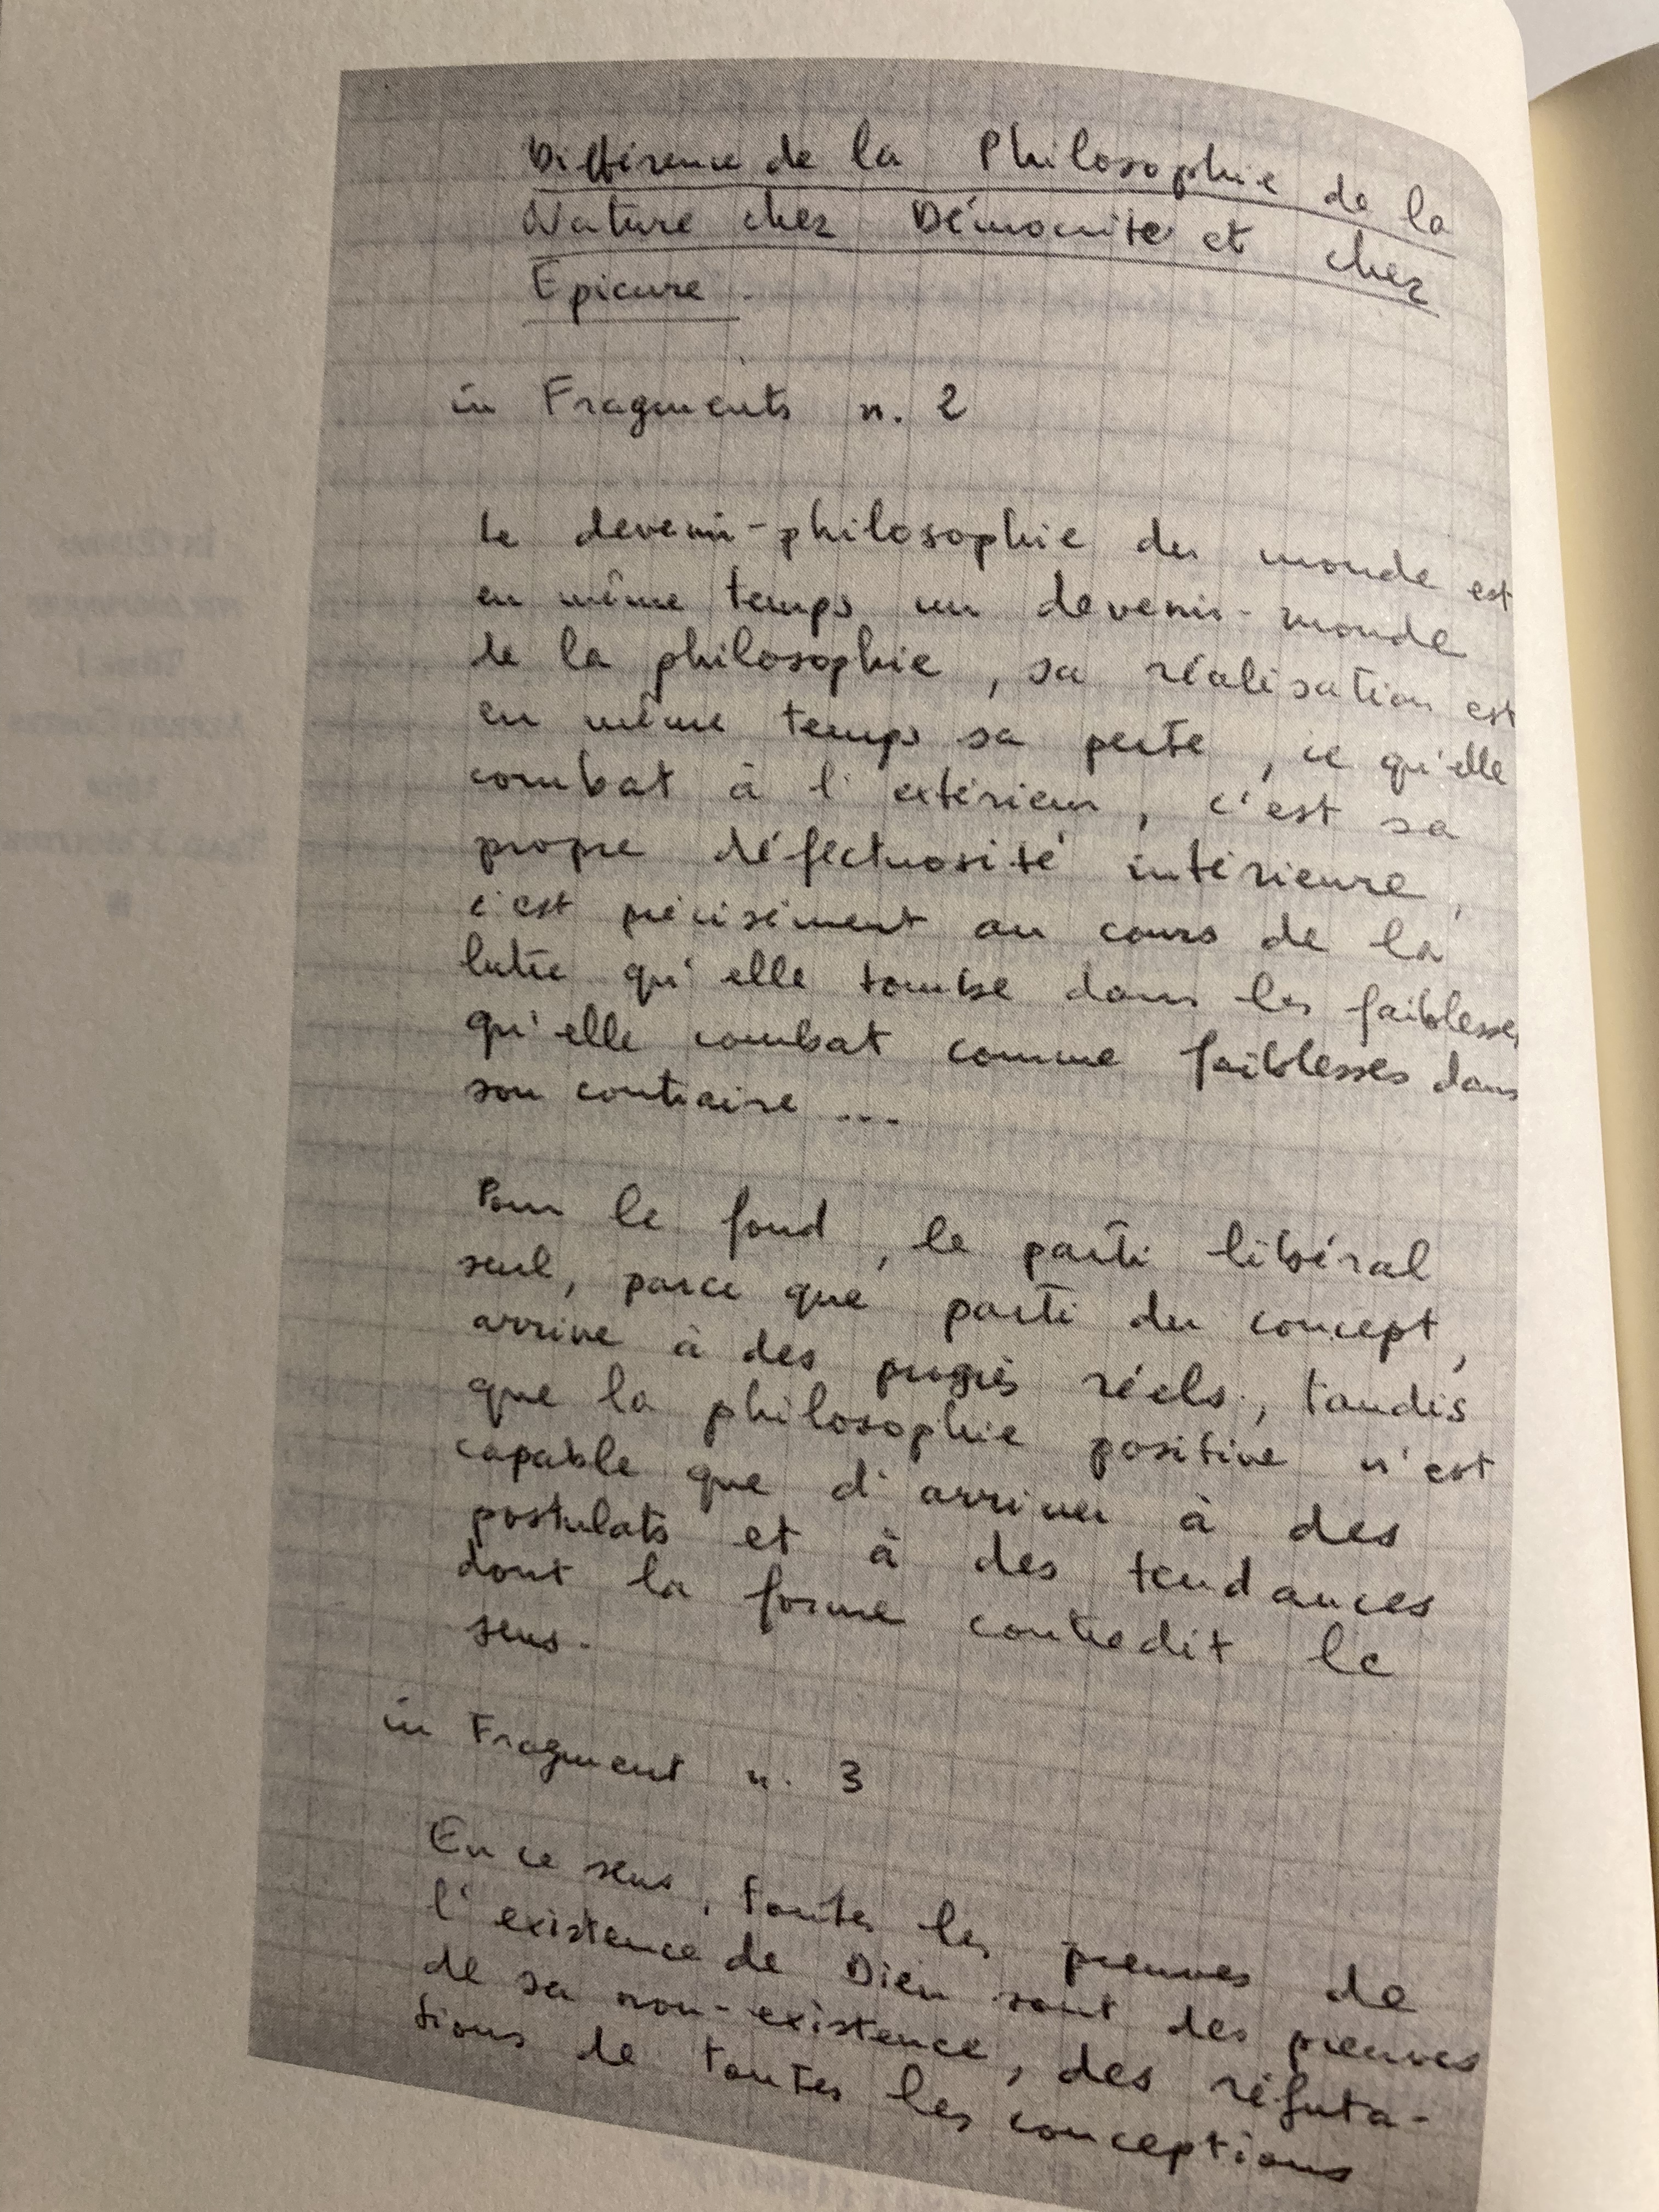 Différence de la Philosophie de la
Nature chez Démocrite et chez
Epicure.
in Fragments n. 2
Le devenir-philosophie du monde est
en même temps un devenir-monde
de la philosophie, sa réalisation est
en même temps sa perte, ce qu'elle
combat à l'extérieur, c'est sa
propre défectuosité intérieure,
c'est précisément au cours de la
lutte qu'elle tombe dans les faiblesses
qu'elle combat comme faiblesses dans
son contraire ...
Pour le fond, le parti libéral
seul, parce que parti du concept,
arrive à des progrès réels, tandis
que la philosophie positive n'est
capable que d'arriver à des
postulats et à des tendances
dont la forme contredit le
sens.
in Fragment n. 3
En ce sens, toutes les preuves de
l'existence de Dieu sont des preuves
de sa non-existence, des réfuta-
tions de toutes les conceptions